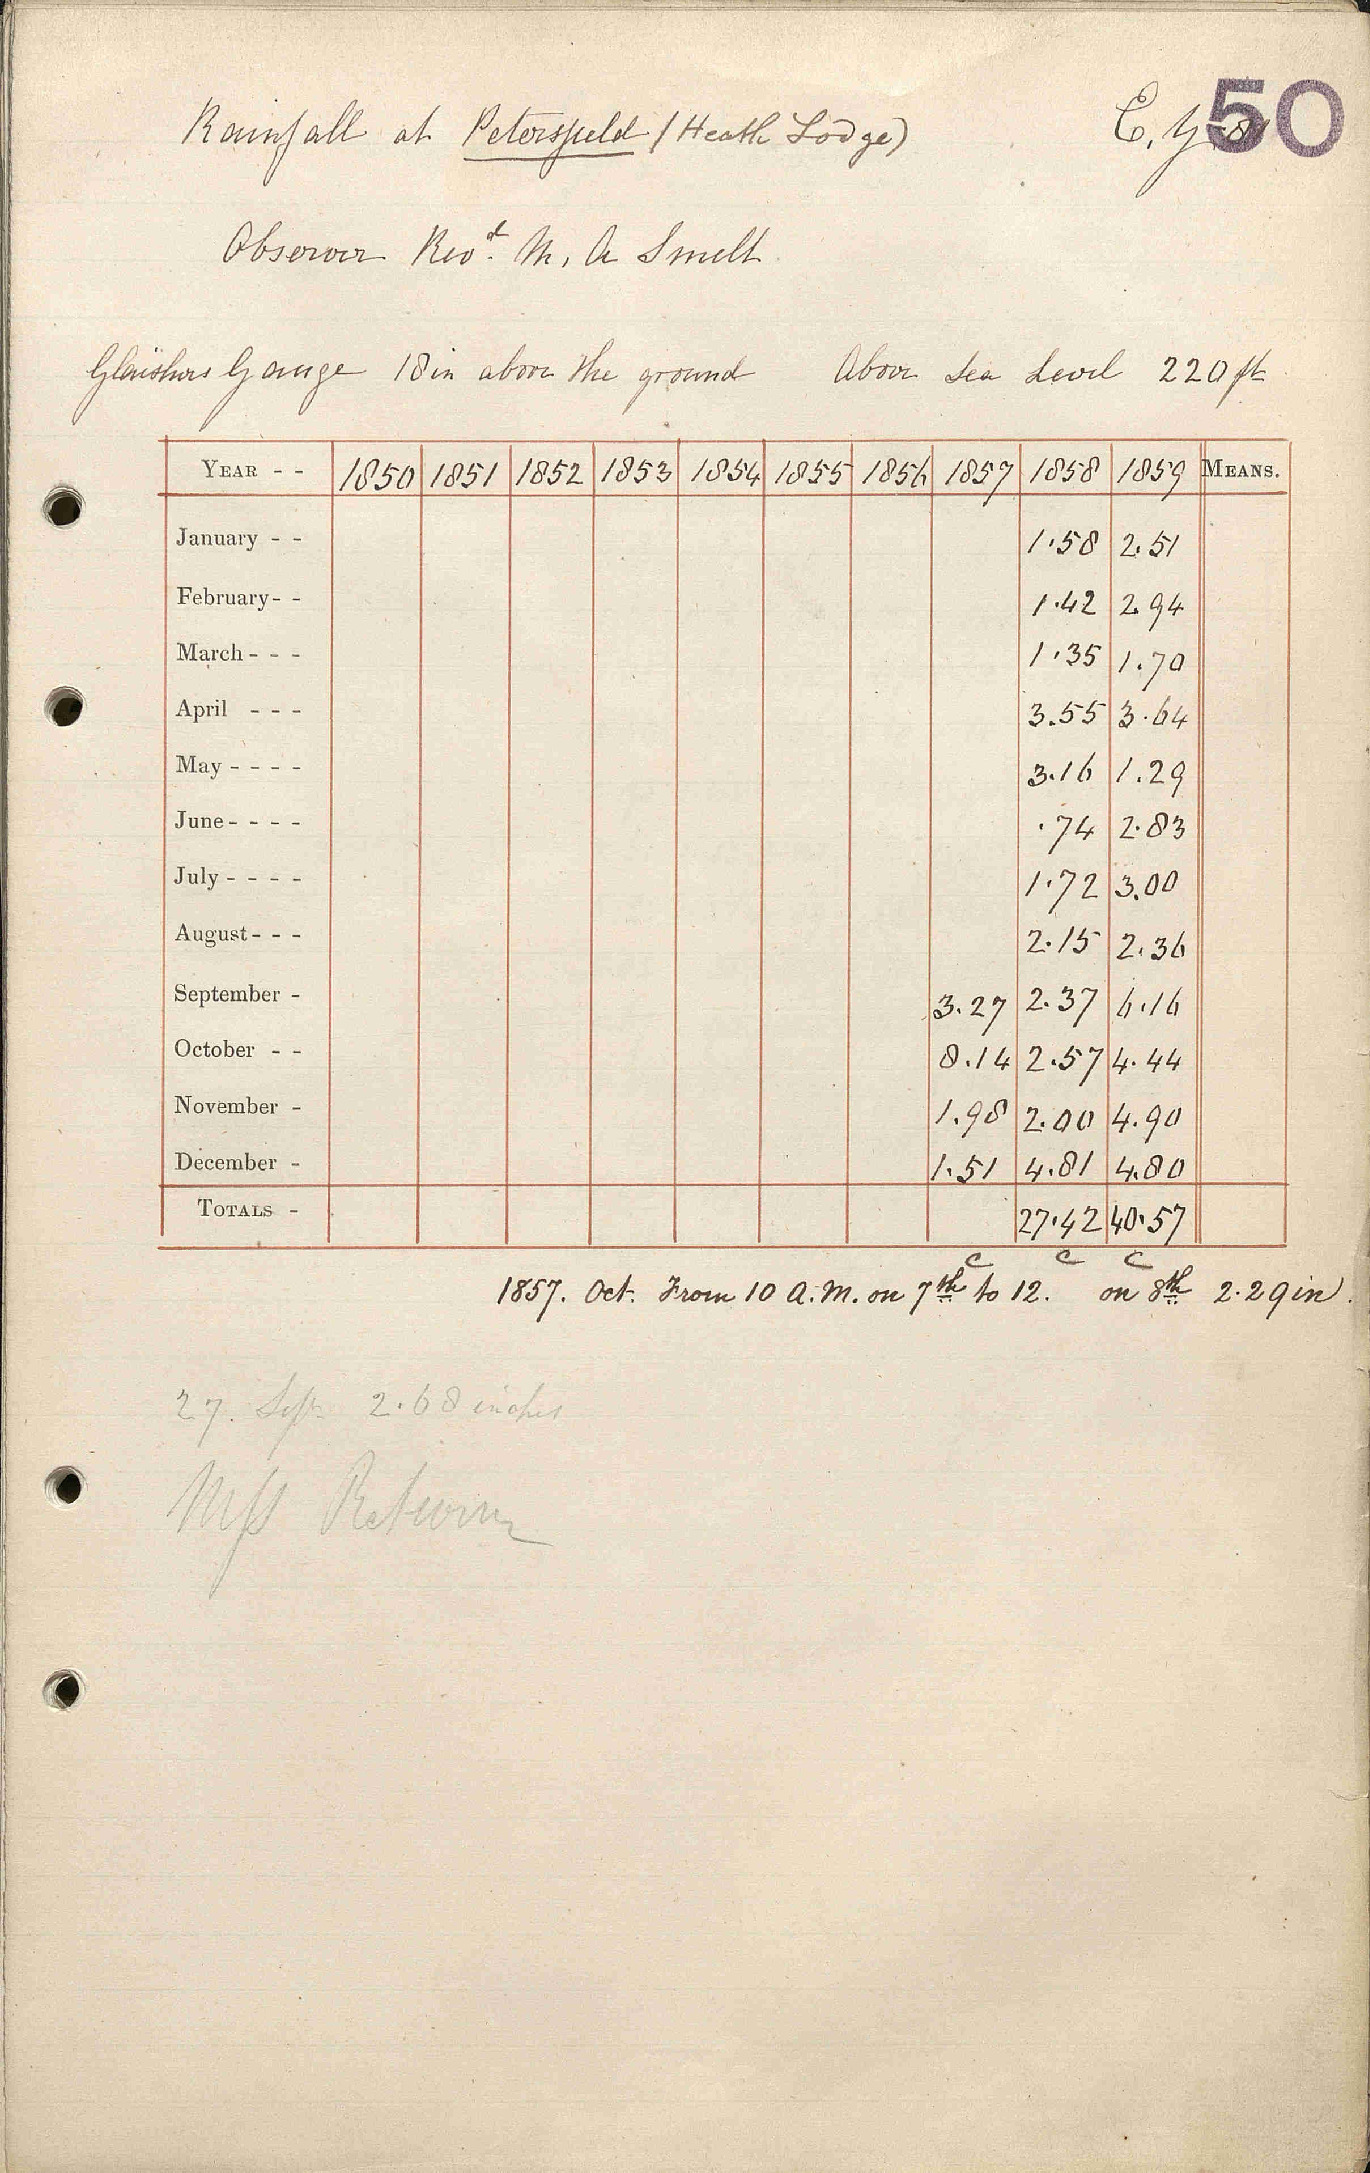 50
Rainfall at Petersfield (Heath Lodge)
Observer Revd. M. A Smelt
Glaishers Gauge 18 in above the ground Above Sea Level 220 ft
YEAR - - 1850 1851 1852 1853 1854 1855 1856 1857 1858 1859 MEANS.
January - - 1.58 2.51
February - - 1.42 2.94
March - - - 1.35 1.70
April - - - 3.55 3.64
May - - - - 3.16 1.29
June - - - - .74 2.83
July - - - - 1.72 3.00
August - - - 2.15 2.36
September - 3.27 2.37 6.16
October - - 8.14 2.57 4.44
November - 1.98 2.00 4.90
December - 1.51 4.81 4.80
TOTALS - 27.42 40.57
c c c
1857. Oct. From 10 A.M. on 7th to 12. on 8th 2.29 in.
27. Sep. 2.68 inches
Mss Return